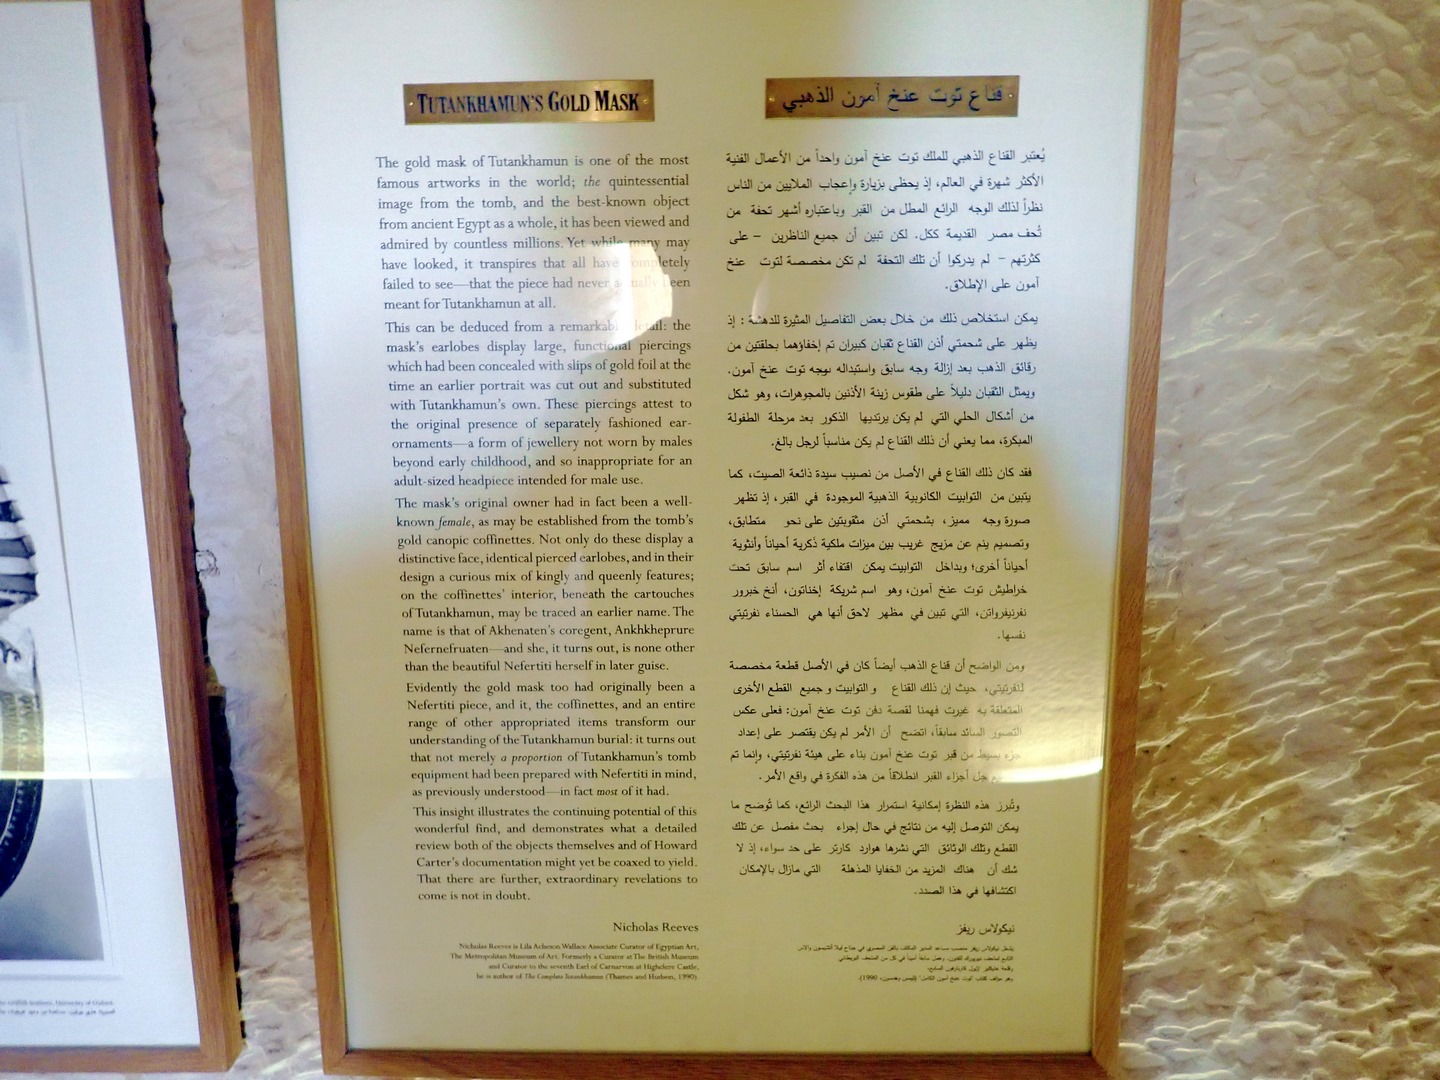 TUTANKHAMUN'S GOLD MASK
The gold mask of Tutankhamun is one of the most
famous artworks in the world; the quintessential
image from the tomb, and the best-known object
from ancient Egypt as a whole, it has been viewed and
admired by countless millions. Yet while many may
have looked, it transpires that all have completely
failed to see—that the piece had never actually been
meant for Tutankhamun at all.
This can be deduced from a remarkable detail: the
mask's earlobes display large, functional piercings
which had been concealed with slips of gold foil at the
time an earlier portrait was cut out and substituted
with Tutankhamun's own. These piercings attest to
the original presence of separately fashioned ear-
ornaments—a form of jewellery not worn by males
beyond early childhood, and so inappropriate for an
adult-sized headpiece intended for male use.
The mask's original owner had in fact been a well-
known female, as may be established from the tomb's
gold canopic coffinettes. Not only do these display a
distinctive face, identical pierced earlobes, and in their
design a curious mix of kingly and queenly features;
on the coffinettes' interior, beneath the cartouches
of Tutankhamun, may be traced an earlier name. The
name is that of Akhenaten's coregent, Ankhkheprure
Nefernefruaten—and she, it turns out, is none other
than the beautiful Nefertiti herself in later guise.
Evidently the gold mask too had originally been a
Nefertiti piece, and it, the coffinettes, and an entire
range of other appropriated items transform our
understanding of the Tutankhamun burial: it turns out
that not merely a proportion of Tutankhamun's tomb
equipment had been prepared with Nefertiti in mind,
as previously understood—in fact most of it had.
This insight illustrates the continuing potential of this
wonderful find, and demonstrates what a detailed
review both of the objects themselves and of Howard
Carter's documentation might yet be coaxed to yield.
That there are further, extraordinary revelations to
come is not in doubt.
Nicholas Reeves
Nicholas Reeves is Lila Acheson Wallace Associate Curator of Egyptian Art,
The Metropolitan Museum of Art. Formerly a Curator at The British Museum
and Curator to the seventh Earl of Carnarvon at Highclere Castle,
he is author of The Complete Tutankhamun (Thames and Hudson, 1990).
قناع توت عنخ آمون الذهبي
يُعتبر القناع الذهبي للملك توت عنخ آمون واحداً من الأعمال الفنية
الأكثر شهرة في العالم، إذ يحظى بزيارة وإعجاب الملايين من الناس
نظراً لذلك الوجه الرائع المطل من القبر وباعتباره أشهر تحفة من
تُحف مصر القديمة ككل. لكن تبين أن جميع الناظرين – على
كثرتهم – لم يدركوا أن تلك التحفة لم تكن مخصصة لتوت عنخ
آمون على الإطلاق.
يمكن استخلاص ذلك من خلال بعض التفاصيل المثيرة للدهشة : إذ
يظهر على شحمتي أذن القناع ثقبان كبيران تم إخفاؤهما بحلقتين من
رقائق الذهب بعد إزالة وجه سابق واستبداله بوجه توت عنخ آمون.
ويمثل الثقبان دليلاً على طقوس زينة الأذنين بالمجوهرات، وهو شكل
من أشكال الحلي التي لم يكن يرتديها الذكور بعد مرحلة الطفولة
المبكرة، مما يعني أن ذلك القناع لم يكن مناسباً لرجل بالغ.
فقد كان ذلك القناع في الأصل من نصيب سيدة ذائعة الصيت، كما
يتبين من التوابيت الكانوبية الذهبية الموجودة في القبر، إذ تظهر
صورة وجه مميز، بشحمتي أذن مثقوبتين على نحو متطابق،
وتصميم ينم عن مزيج غريب بين ميزات ملكية ذكرية أحياناً وأنثوية
أحياناً أخرى؛ وبداخل التوابيت يمكن اقتفاء أثر اسم سابق تحت
خراطيش توت عنخ آمون، وهو اسم شريكة إخناتون، أنخ خبرور
نفرنيفرواتن، التي تبين في مظهر لاحق أنها هي الحسناء نفرتيتي
نفسها.
ومن الواضح أن قناع الذهب أيضاً كان في الأصل قطعة مخصصة
لنفرتيتي، حيث إن ذلك القناع والتوابيت وجميع القطع الأخرى
المتعلقة به غيرت فهمنا لقصة دفن توت عنخ آمون: فعلى عكس
التصور السائد سابقاً، اتضح أن الأمر لم يكن يقتصر على إعداد
جزء بسيط من قبر توت عنخ آمون بناء على هيئة نفرتيتي، وإنما تم
جل أجزاء القبر انطلاقاً من هذه الفكرة في واقع الأمر.
وتُبرز هذه النظرة إمكانية استمرار هذا البحث الرائع، كما تُوضح ما
يمكن التوصل إليه من نتائج في حال إجراء بحث مفصل عن تلك
القطع وتلك الوثائق التي نشرها هوارد كارتر على حد سواء، إذ لا
شك أن هناك المزيد من الخفايا المذهلة التي مازال بالإمكان
اكتشافها في هذا الصدد.
نيكولاس ريفز
Griffith Institute, University of Oxford.